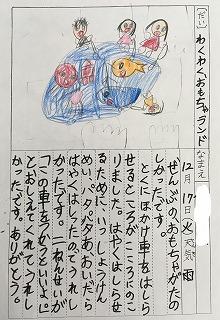 (だい)
わくわく、おもちゃランド
なまえ
12月17日(火)天気 雨
ぜんぶの、おもちゃがたの
しかったです。
とくにほかけ車をはしら
せるところがこころにのこ
りました。はやくはしらせ
るために、いっしょうけん
めい、パタパタあおいだら
はやくはしったのでうれし
かったです。二ねんせいが
「この車をつかうといいよ。」
とおしえてくれてうれし
かったです。ありがとう。